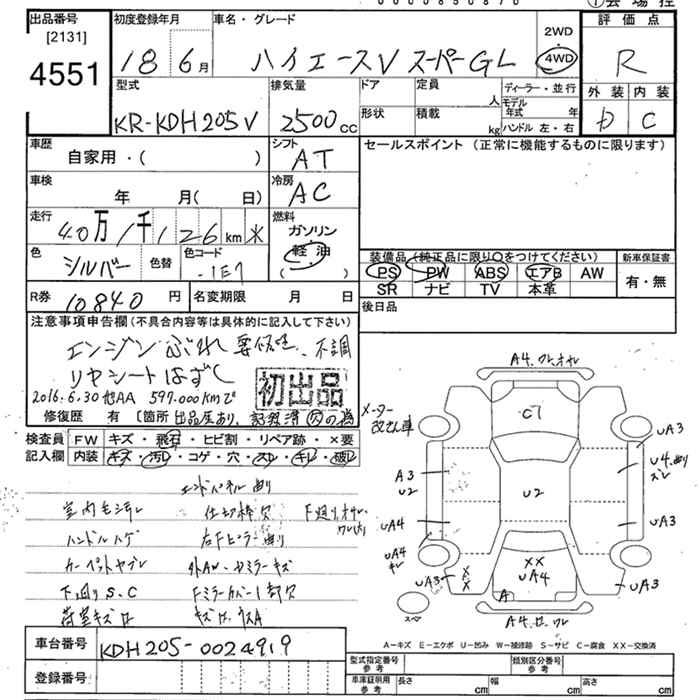 ①会場控
出品番号 初度登録年月 車名・グレード 2WD 評価点
[2131]
4551 18 6月 ハイエースV スーパーGL 4WD R
型式 排気量 ドア 定員 ディーラー・並行 外装 内装
人 モデル年式 年
KR-KDH205V 2500cc 形状 積載 kg ハンドル 左・右 D C
車歴 シフト セールスポイント (正常に機能するものに限ります)
自家用・( ) AT
車検 冷房
年 月( 日) AC
走行 燃料
40万1千126km ※ ガソリン
色 色替 色コード 軽油 装備品(純正品に限り○をつけてください) 新車保証書
シルバー 1E7 ( ) PS PW ABS エアB AW 有・無
SR ナビ TV 本革
R券 10840円 名変期限 月 日 後日品
注意事項申告欄(不具合内容等は具体的に記入して下さい)
エンジン ぶれ 不調
リヤシートはずし 初出品
2016.6.30 他AA 597.000kmで
修復歴 有 [箇所 出品屋あり、記録済
検査員 FW キズ・飛石・ヒビ割・リペア跡・×要
記入欄 内装 キズ・汚レ・コゲ・穴・スレ・キレ・破レ
エンドパネル曲り
室内毛汚レ 仕切棒欠
ハンドルハゲ 右Fピラー曲り
カーペットヤブレ
下回りS.C
荷室キズ
メーター改ざん車
C7
U2
A3
U2
UA4
UA4
UA3
XX
UA4
A
UA3
U4曲り
ズレ
UA3
UA3
スペア
A−キズ E−エクボ U−凹み W−補修跡 S−サビ C−腐食 XX−交換済
車台番号 KDH205-0024919
登録番号
型式指定番号 参考 類別区分番号 参考
車庫証明用 参考 長さ cm 幅 cm 高さ cm